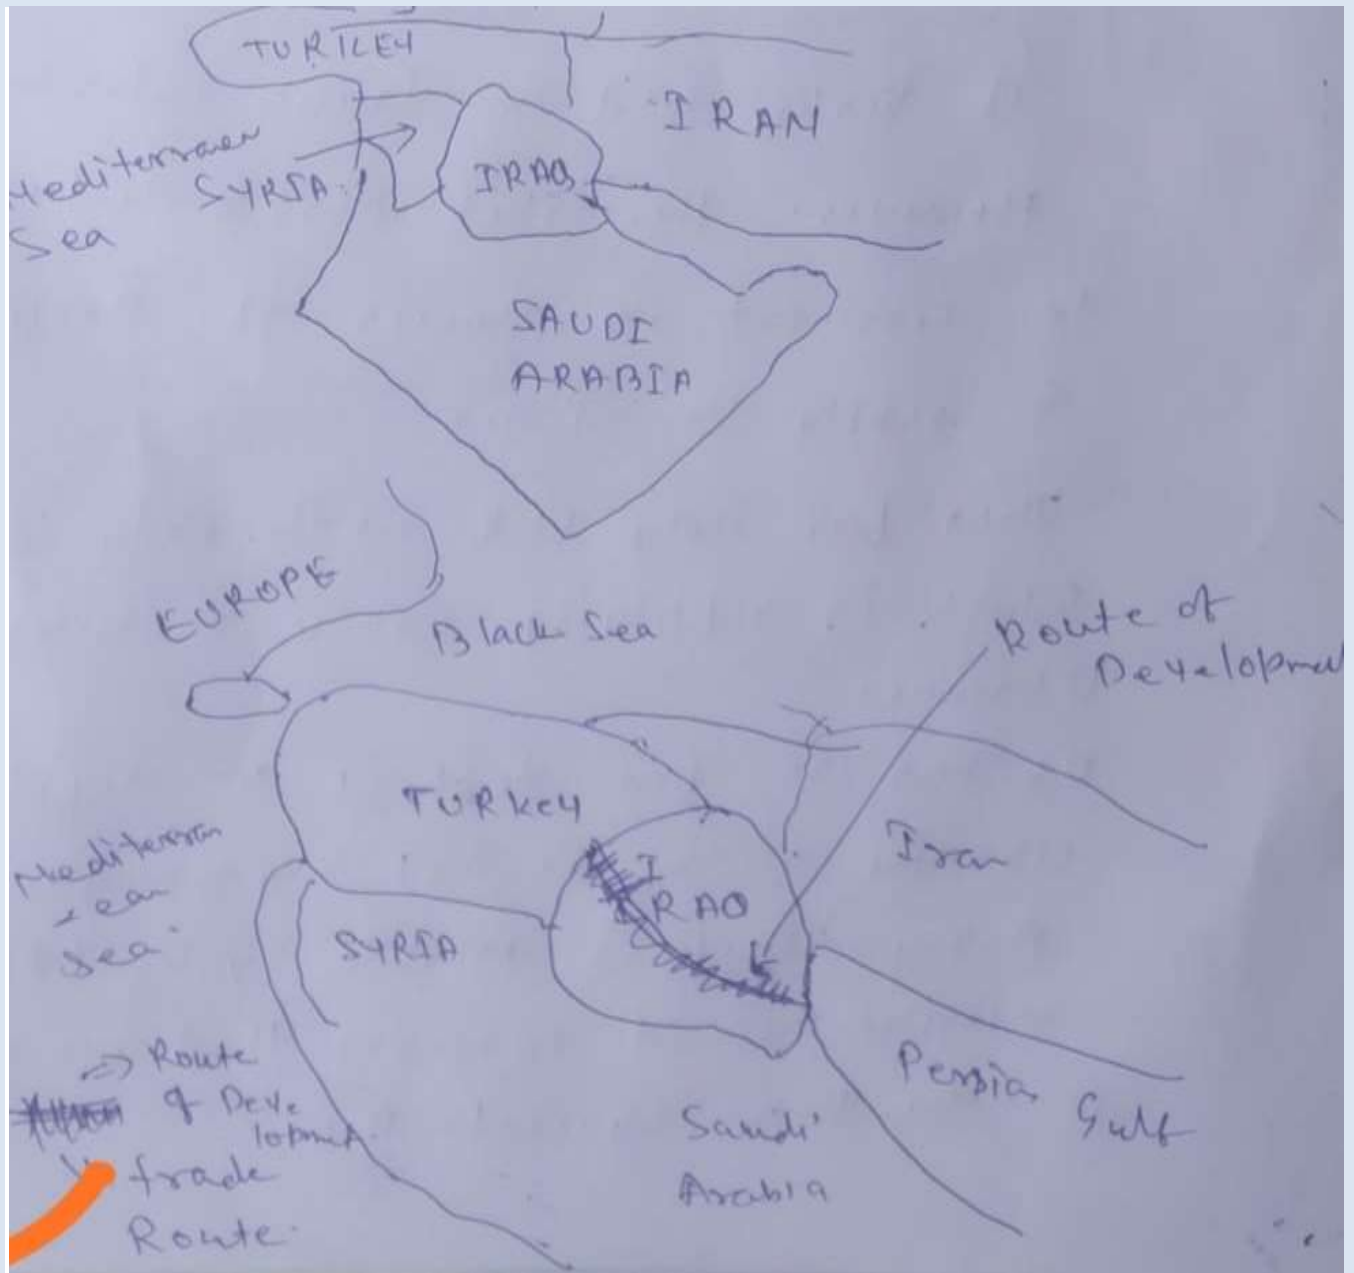 TURKEY
IRAN
Mediterraen
Sea
SYRIA
IRAQ
SAUDI
ARABIA
EUROPE
Black Sea
Route of
Developmen
TURKEY
Iran
Mediterran
ean
Sea
IRAQ
SYRIA
Persian Gulf
Saudi
Arabia
=> Route
of Deve
lopment
trade
Route